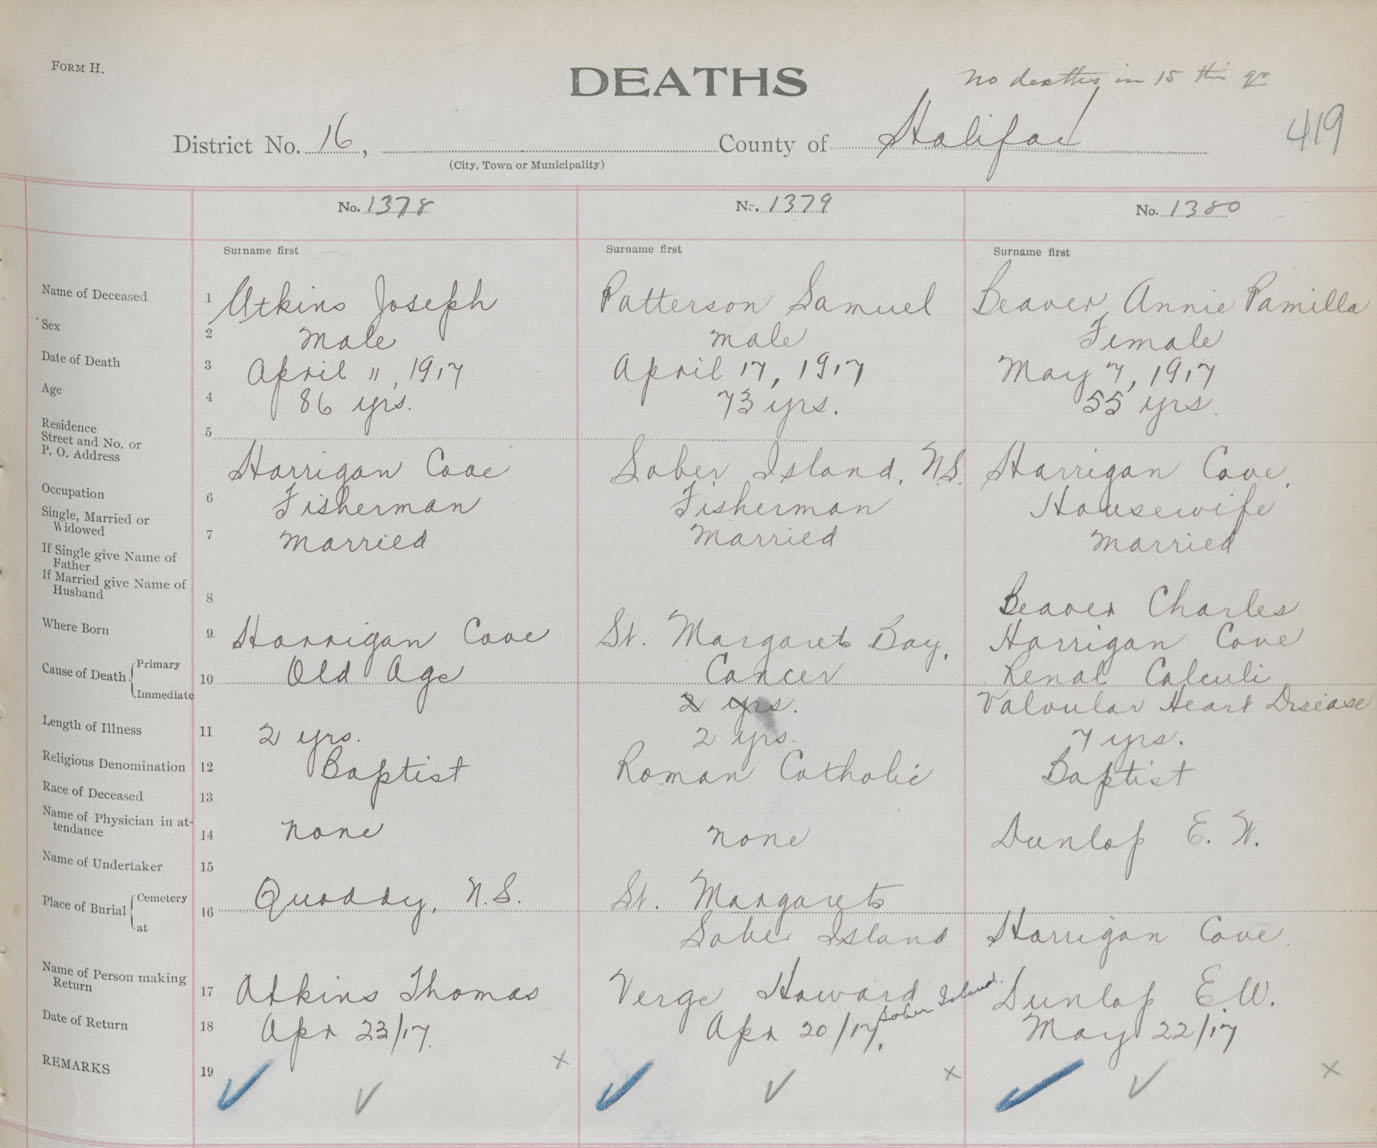 FORM H.
DEATHS
No deaths in 15 this qr
419
District No. 16, County of Halifax
(City, Town or Municipality)
No. 1378 No. 1379 No. 1380
Surname first Surname first Surname first
Name of Deceased 1 Atkins Joseph Patterson Samuel Beaver Annie Pamilla
Sex 2 Male male Female
Date of Death 3 April 11, 1917 April 17, 1917 May 7, 1917
Age 4 86 yrs. 73 yrs. 55 yrs.
Residence
Street and No. or
P. O. Address 5 Harrigan Cove Sober Island, N.S. Harrigan Cove,
Occupation 6 Fisherman Fisherman Housewife
Single, Married or
Widowed 7 Married Married Married
If Single give Name of
Father
If Married give Name of
Husband 8 Beaver Charles
Where Born 9. Harrigan Cove St. Margarets Bay, Harrigan Cove
Cause of Death Primary 10 Old Age Cancer Renal Calculi
Immediate 2 yrs. Valvular Heart Disease
Length of Illness 11 2 yrs. 2 yrs. 7 yrs.
Religious Denomination 12 Baptist Roman Catholic Baptist
Race of Deceased 13
Name of Physician in at-
tendance 14 none none Dunlop E. W.
Name of Undertaker 15
Place of Burial Cemetery 16 Quoddy, N.S. St. Margarets
at Sober Island Harrigan Cove.
Name of Person making
Return 17 Atkins Thomas Verge Howard Sober Island. Dunlop E.W.
Date of Return 18 Apr 23/17. Apr 20/17. May 22/17
REMARKS 19